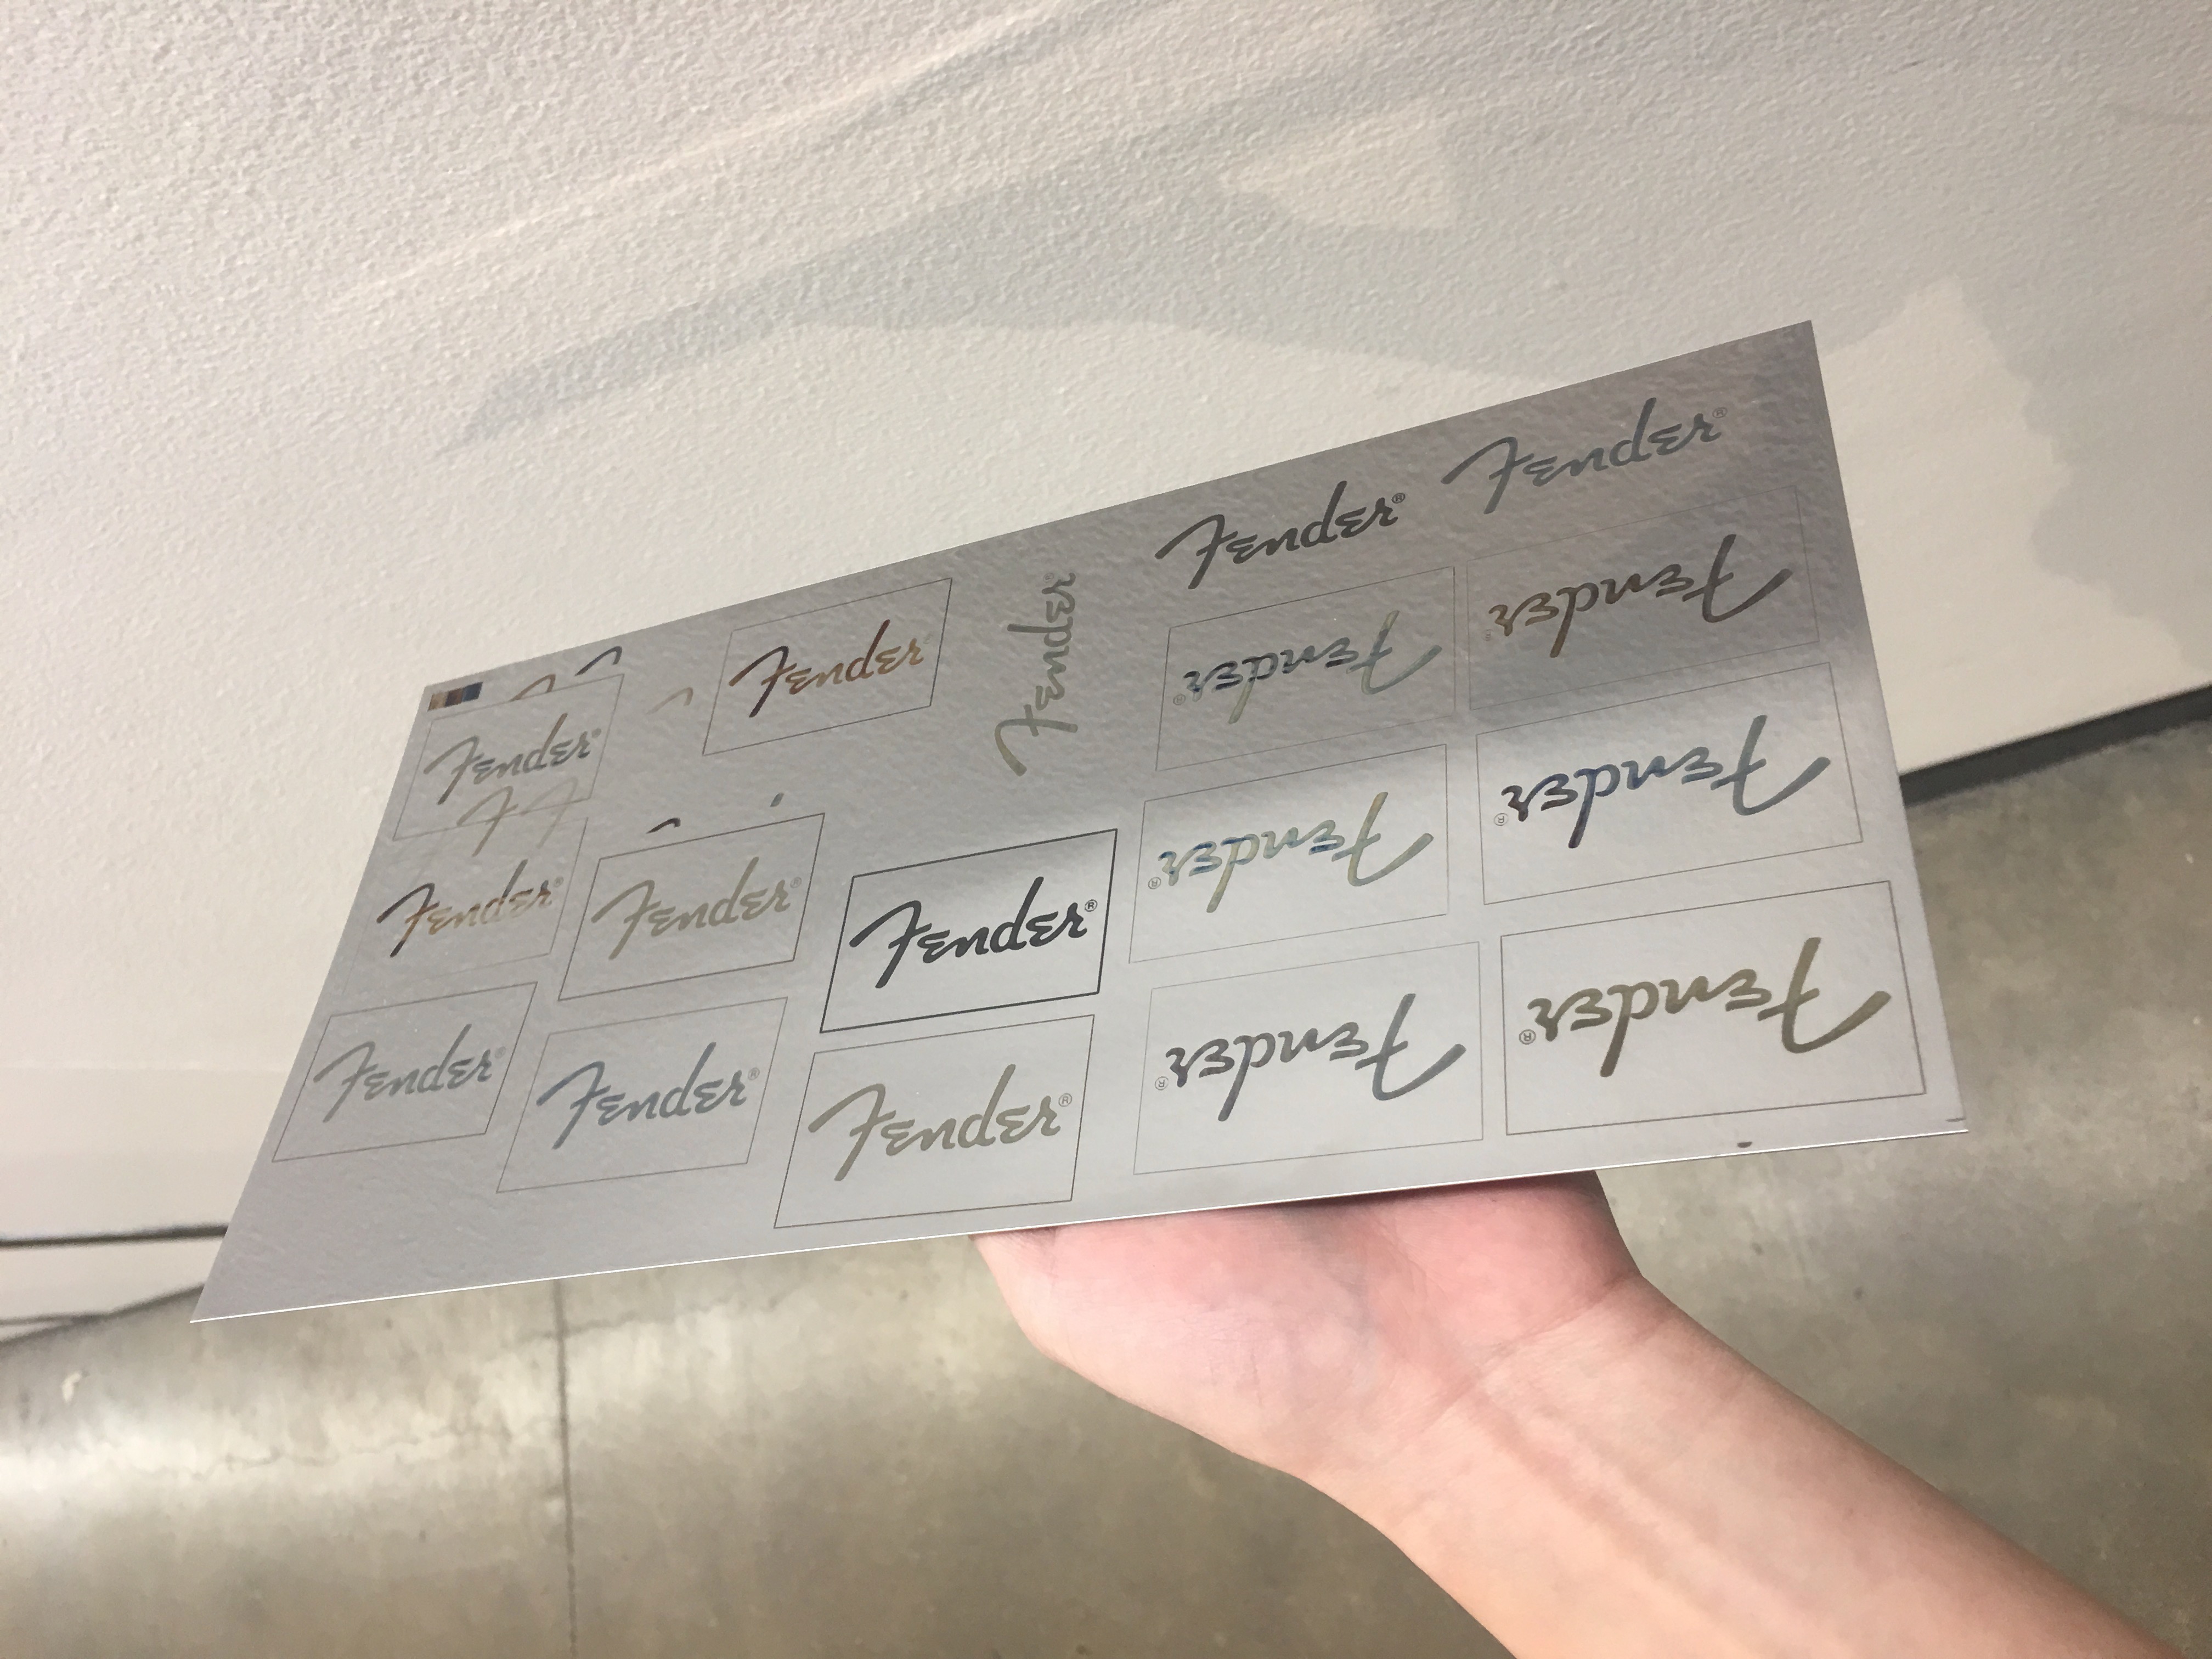 Fender®
Fender®
Fender®
Fender®
Fender®
Fender
Fender®
Fender®
Fender®
Fender®
Fender®
Fender®
Fender®
Fender®
Fender®
Fender®
Fender®